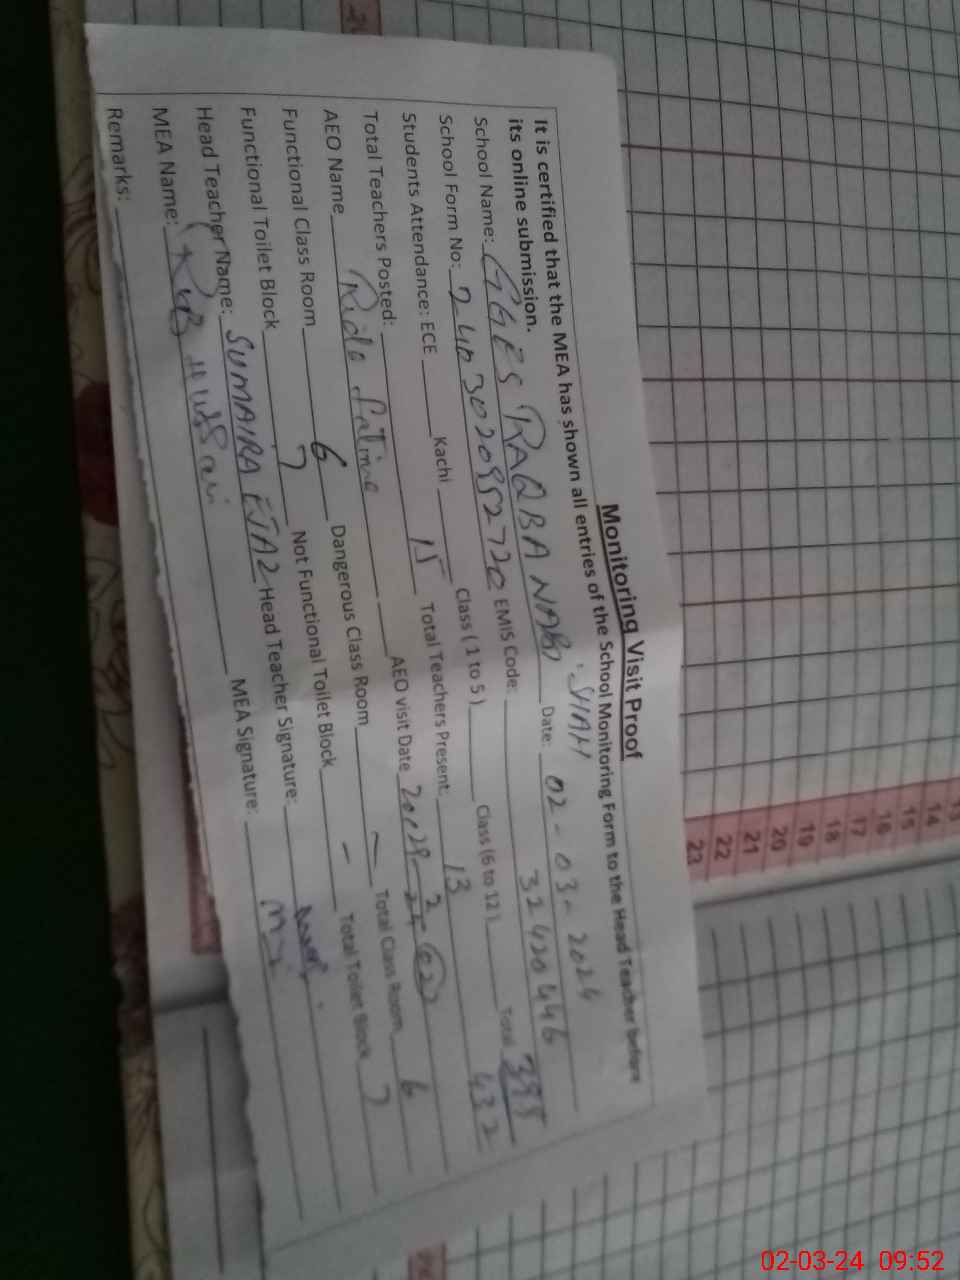 Monitoring Visit Proof
It is certified that the MEA has shown all entries of the School Monitoring Form to the Head Teacher before
its online submission.
School Name: GGES RAQBA NABI SIAH Date: 02-03-2024
School Form No: EMIS Code: 32420446
Students Attendance: ECE Kachi Class (1 to 5) Class (6 to 12) Total 395/432
Total Teachers Posted: 15 Total Teachers Present: 13
AEO Name Rida Fatima AEO visit Date
Functional Class Room 6 Dangerous Class Room — Total Class Room 6
Functional Toilet Block 7 Not Functional Toilet Block — Total Toilet Block 7
Head Teacher Name: SUMAIRA EJAZ Head Teacher Signature:
MEA Name: MEA Signature:
Remarks:
13
14
15
16
17
18
19
20
21
22
23
02-03-24 09:52